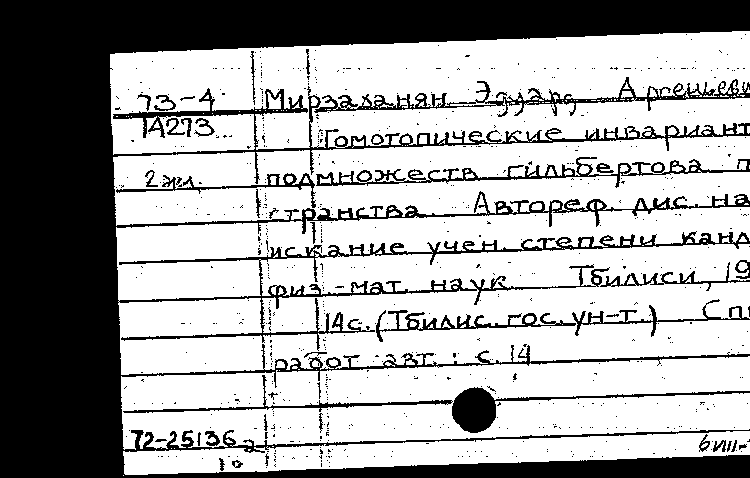 73-4 Мирзаханян Эдуард Арсеньеви
14273 Гомотопические инвариант
2 экз. подмножеств гильбертова п
странства. Автореф. дис. на
искание учен. степени канд
физ.-мат. наук. Тбилиси, 19
14с. (Тбилис. гос. ун-т.) Сп
работ авт.: с. 14
72-25136